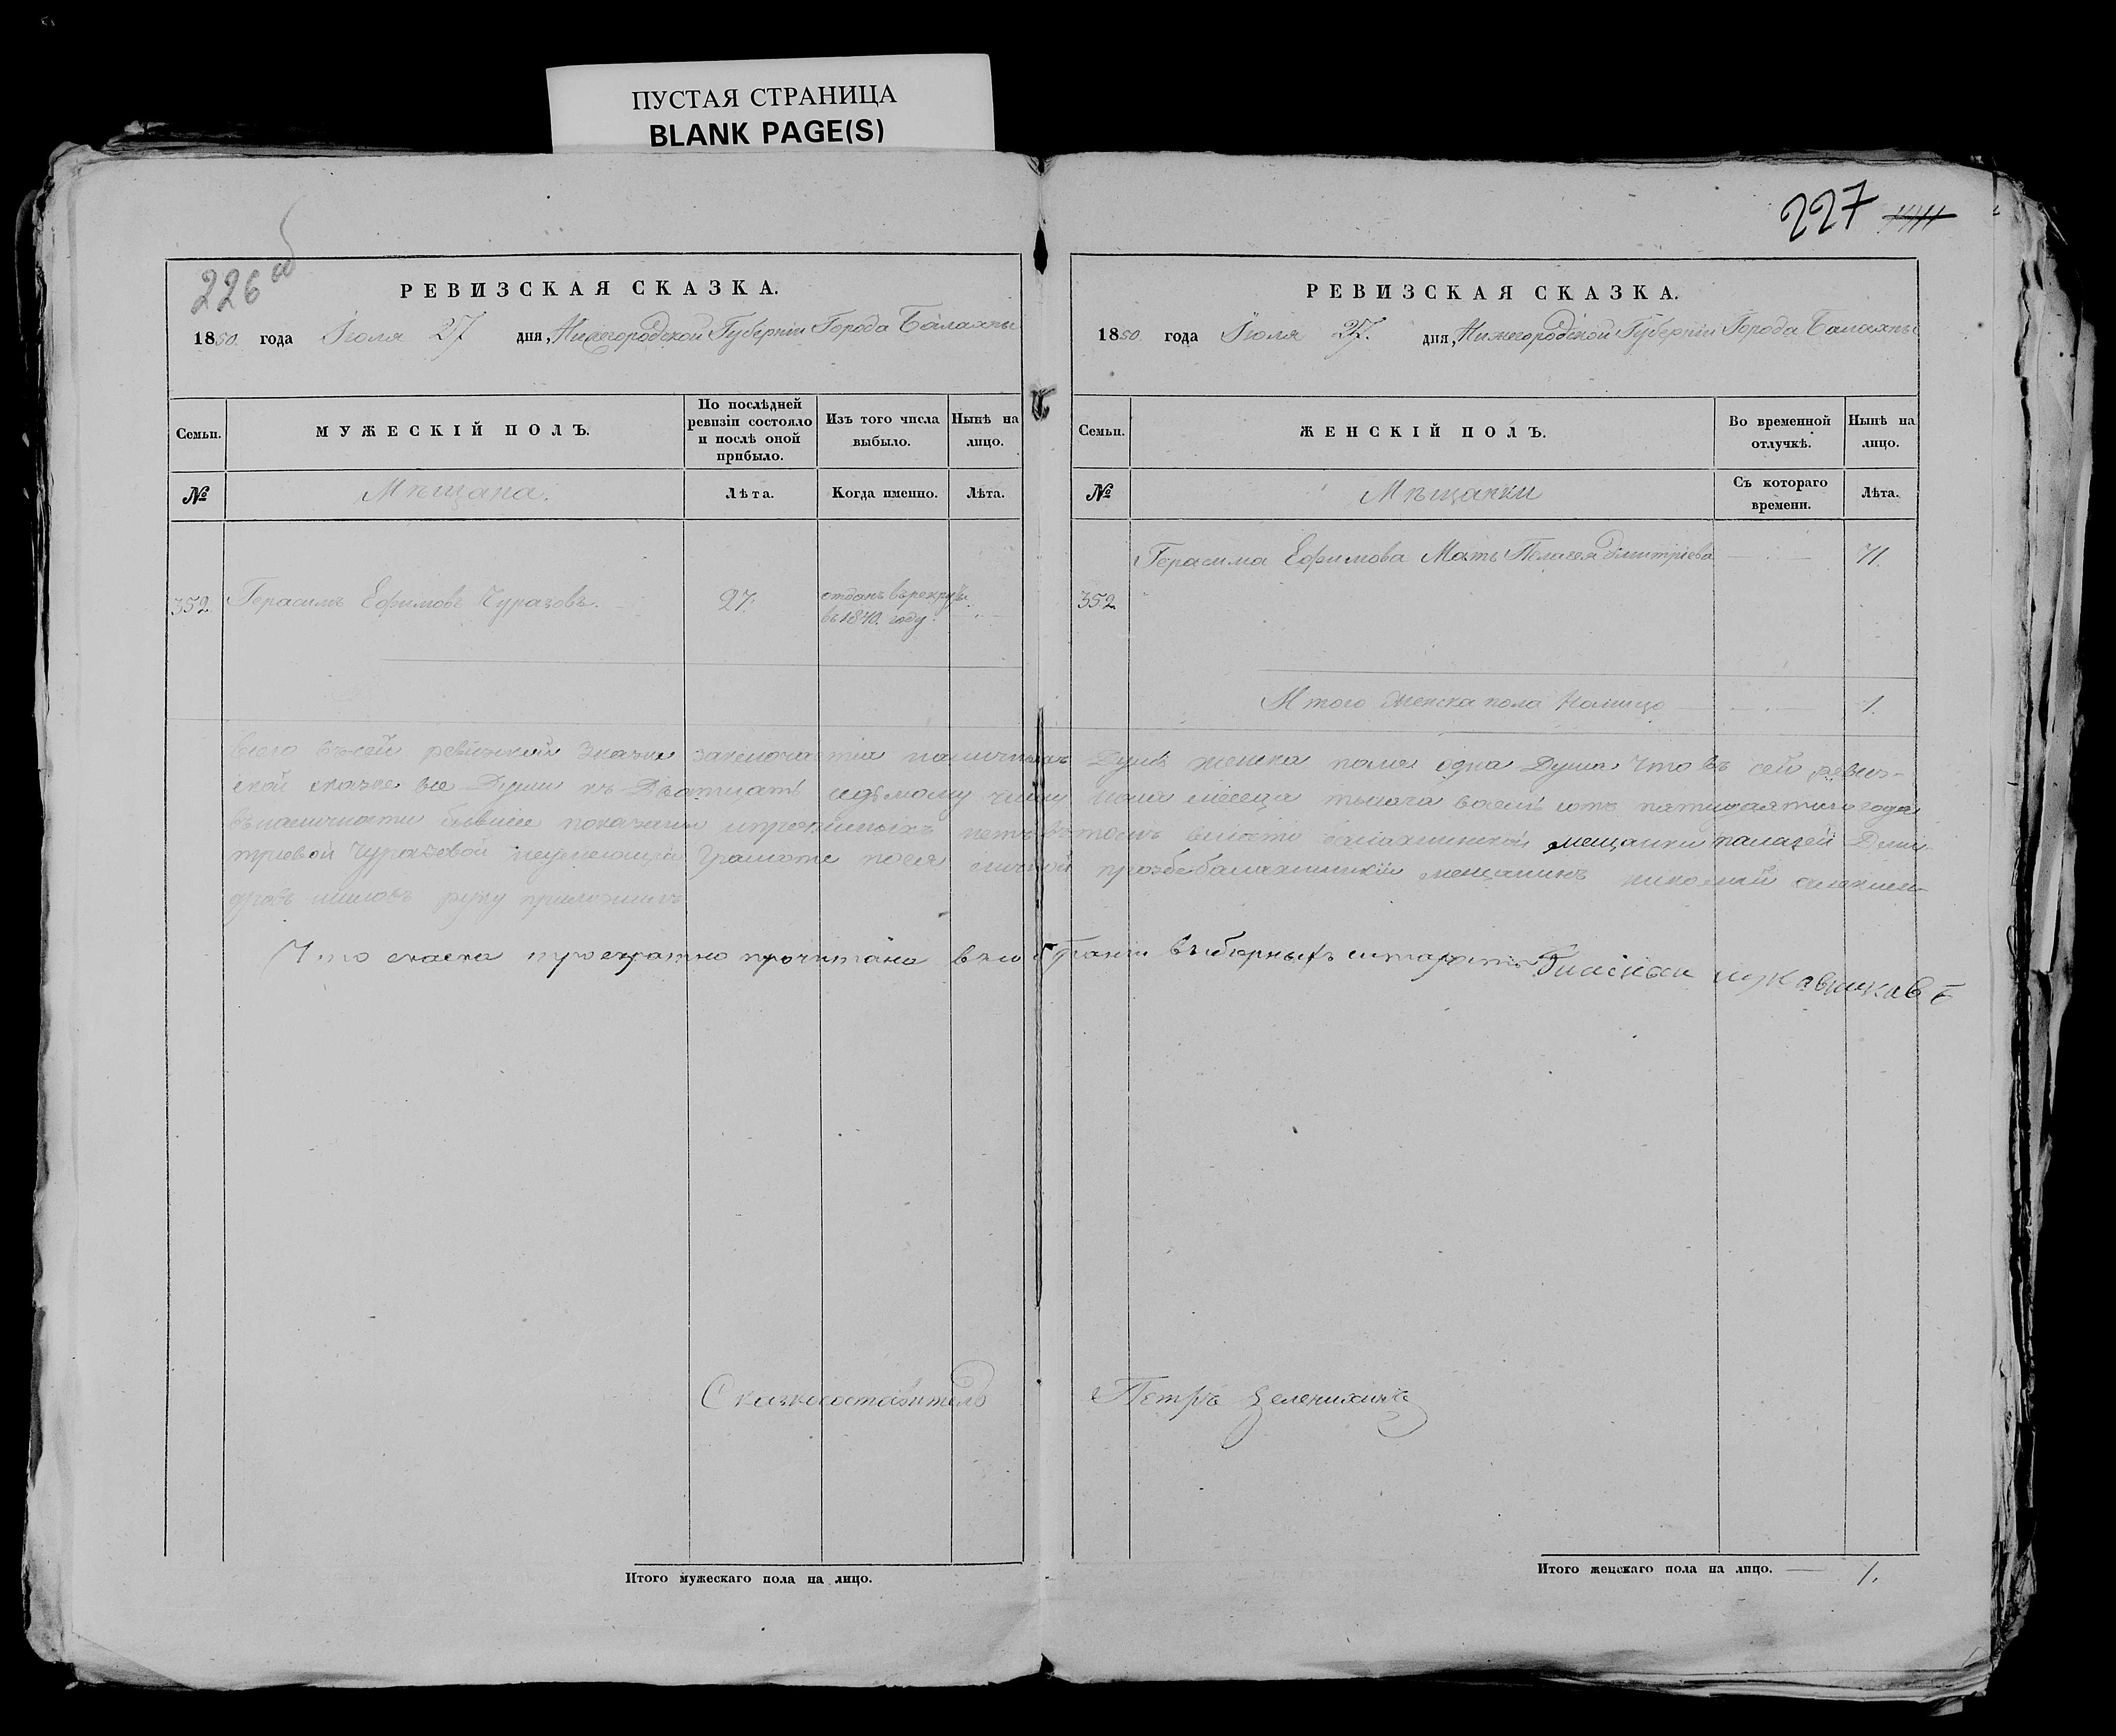 ПУСТАЯ СТРАНИЦА
BLANK PAGE(S)
226 об
РЕВИЗСКАЯ СКАЗКА.
1850. года Іюля 27 дня, Нижегородской Губерніи Города Балахны
Семьи.
МУЖЕСКІЙ ПОЛЪ.
По послѣдней
ревизіи состояло
и послѣ оной
прибыло.
Изъ того числа
выбыло.
Нынѣ на
лицо.
№
Мѣщана.
Лѣта.
Когда именно.
Лѣта.
352.
Герасимъ Ефимовъ Чураковъ.
27.
отданъ врекруты
въ 1840. году.
Итого мужескаго пола на лицо.
227
РЕВИЗСКАЯ СКАЗКА.
1850. года Іюля 27. дня, Нижегородской Губерніи Города Балахны
Семьи.
ЖЕНСКІЙ ПОЛЪ.
Во временной
отлучкѣ.
Нынѣ на
лицо.
№
Мѣщанки
Съ котораго
времени.
Лѣта.
Герасима Ефимова Мать Пелагея Дмитріева
71.
352.
Итого женска пола Налицо
1.
Всего въ сей ревизской сказке заключается наличныхъ Душъ женска пола одна Душа Что въ сей ревиз-
ской сказке все Души къ Дватцать седьмому числу июля месеца тысяча восемь сотъ пятидесятого года
въ наличности бывшие показаны и прописныхъ нетъ въ томъ вместо балахнинской мещанки палагей Дми-
триевой Чураковой неумеющей Грамоте поея личной прозбе балахнинский мещанинъ николай алексан-
дровъ шиловъ руку приложилъ
Что скаска троекратно прочитана
Сказкосоставитель Петръ Зеленихинъ
Итого женскаго пола на лицо. 1.